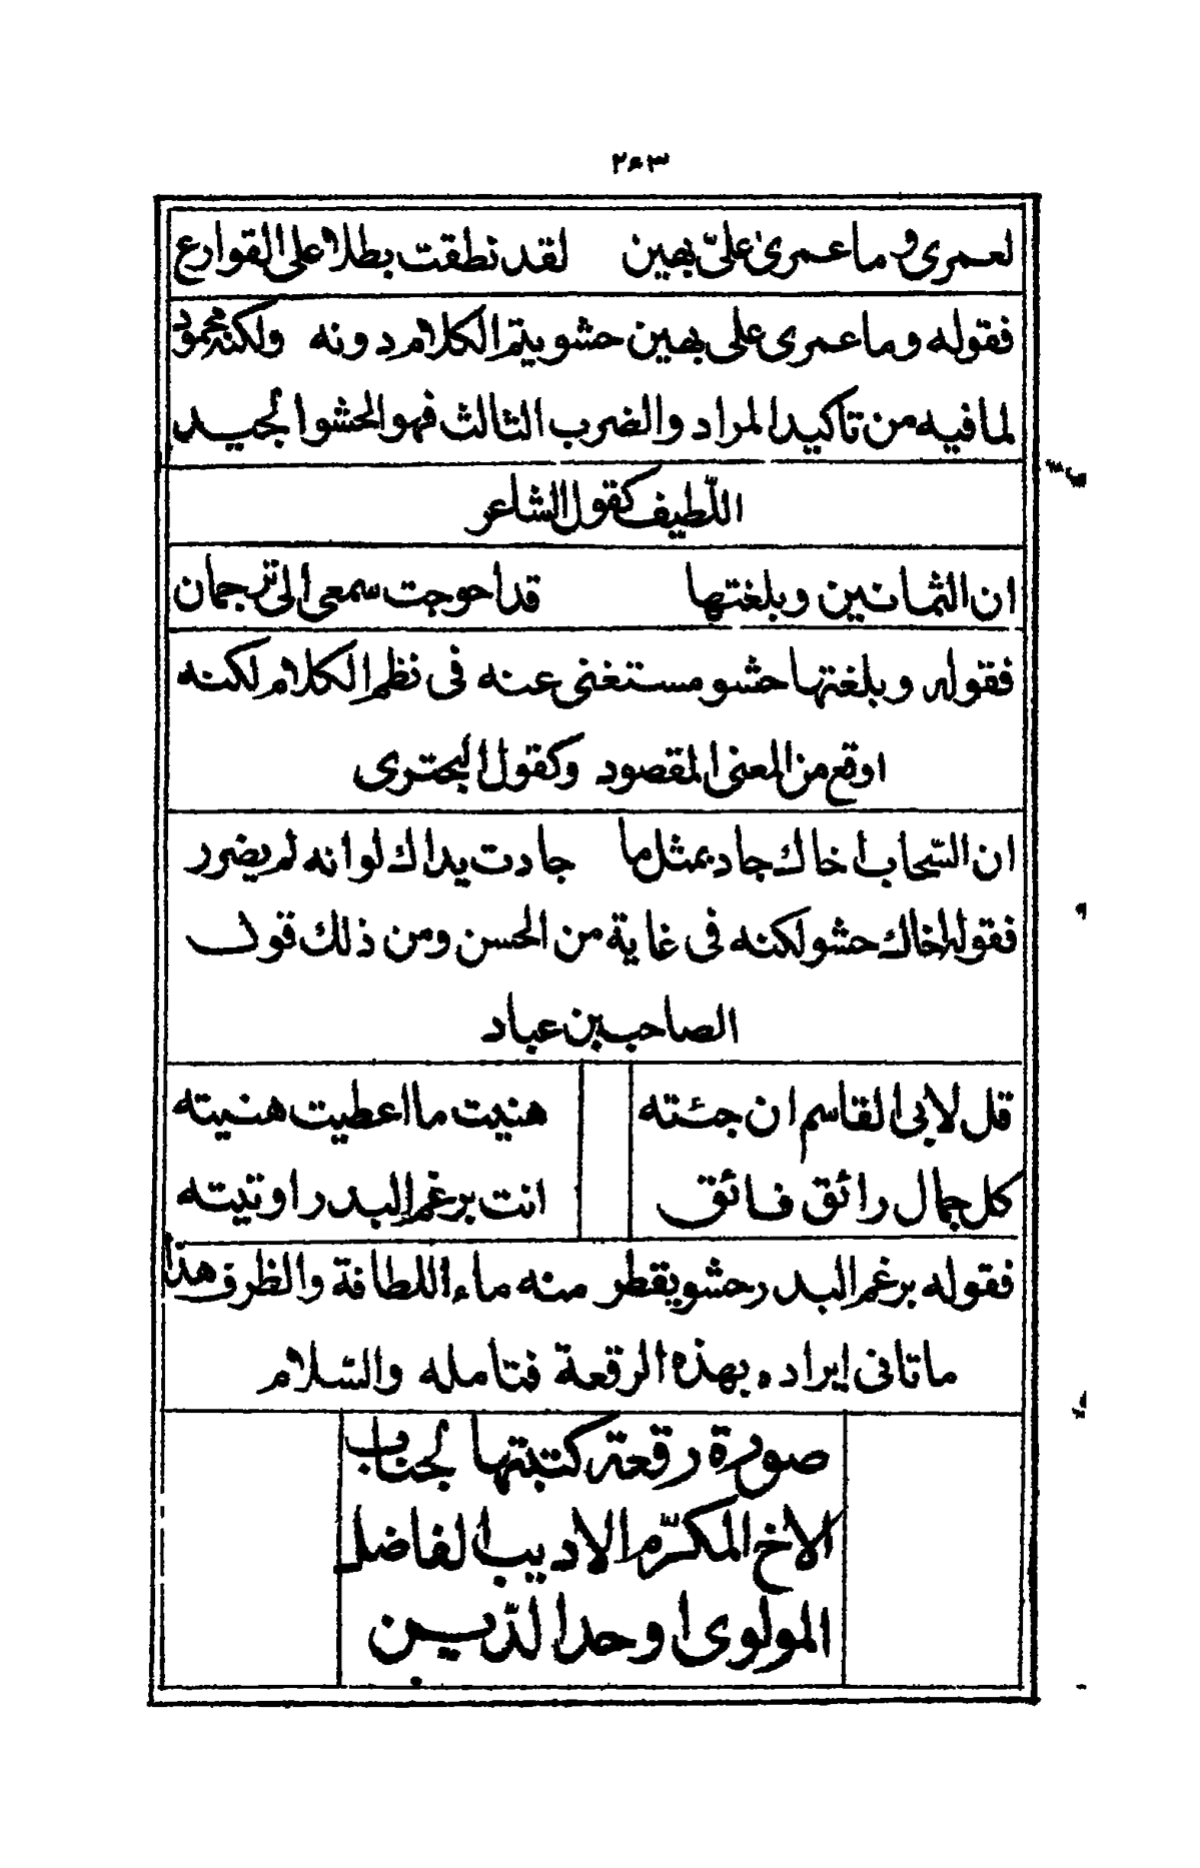 ٢٤٣
لعمرى وما عمرى علىّ بهين لقد نطقت بطلا على القوارع
فقوله وما عمرى على بهين حشو يتم الكلام دونه ولكنه محمود
لما فيه من تاكيد المراد والضرب الثالث فهو الحشو الجيد
اللّطيف كقول الشاعر
ان الثمانين وبلغتها قد احوجت سمعى الى ترجمان
فقوله وبلغتها حشو مستغنى عنه فى نظم الكلام لكنه
اوقع من المعنى المقصود وكقول البحترى
ان السّحاب اخاك جاد بمثل ما جادت يداك لو انه لم يضرر
فقوله اخاك حشو لكنه فى غاية من الحسن ومن ذلك قول
الصاحب بن عباد
قل لابى القاسم ان جئته هنيت ما اعطيت هنيته
كل جمال رائق فائق انت برغم البدر اوتيته
فقوله برغم البدر حشو يقطر منه ماء اللطافة والظرف هذا
ما تانى ايراده بهذه الرقعة فتامله والسّلام
صورة رقعة كتبتها لجناب
الاخ المكرّم الاديب الفاضل
المولوى اوحد الدّين